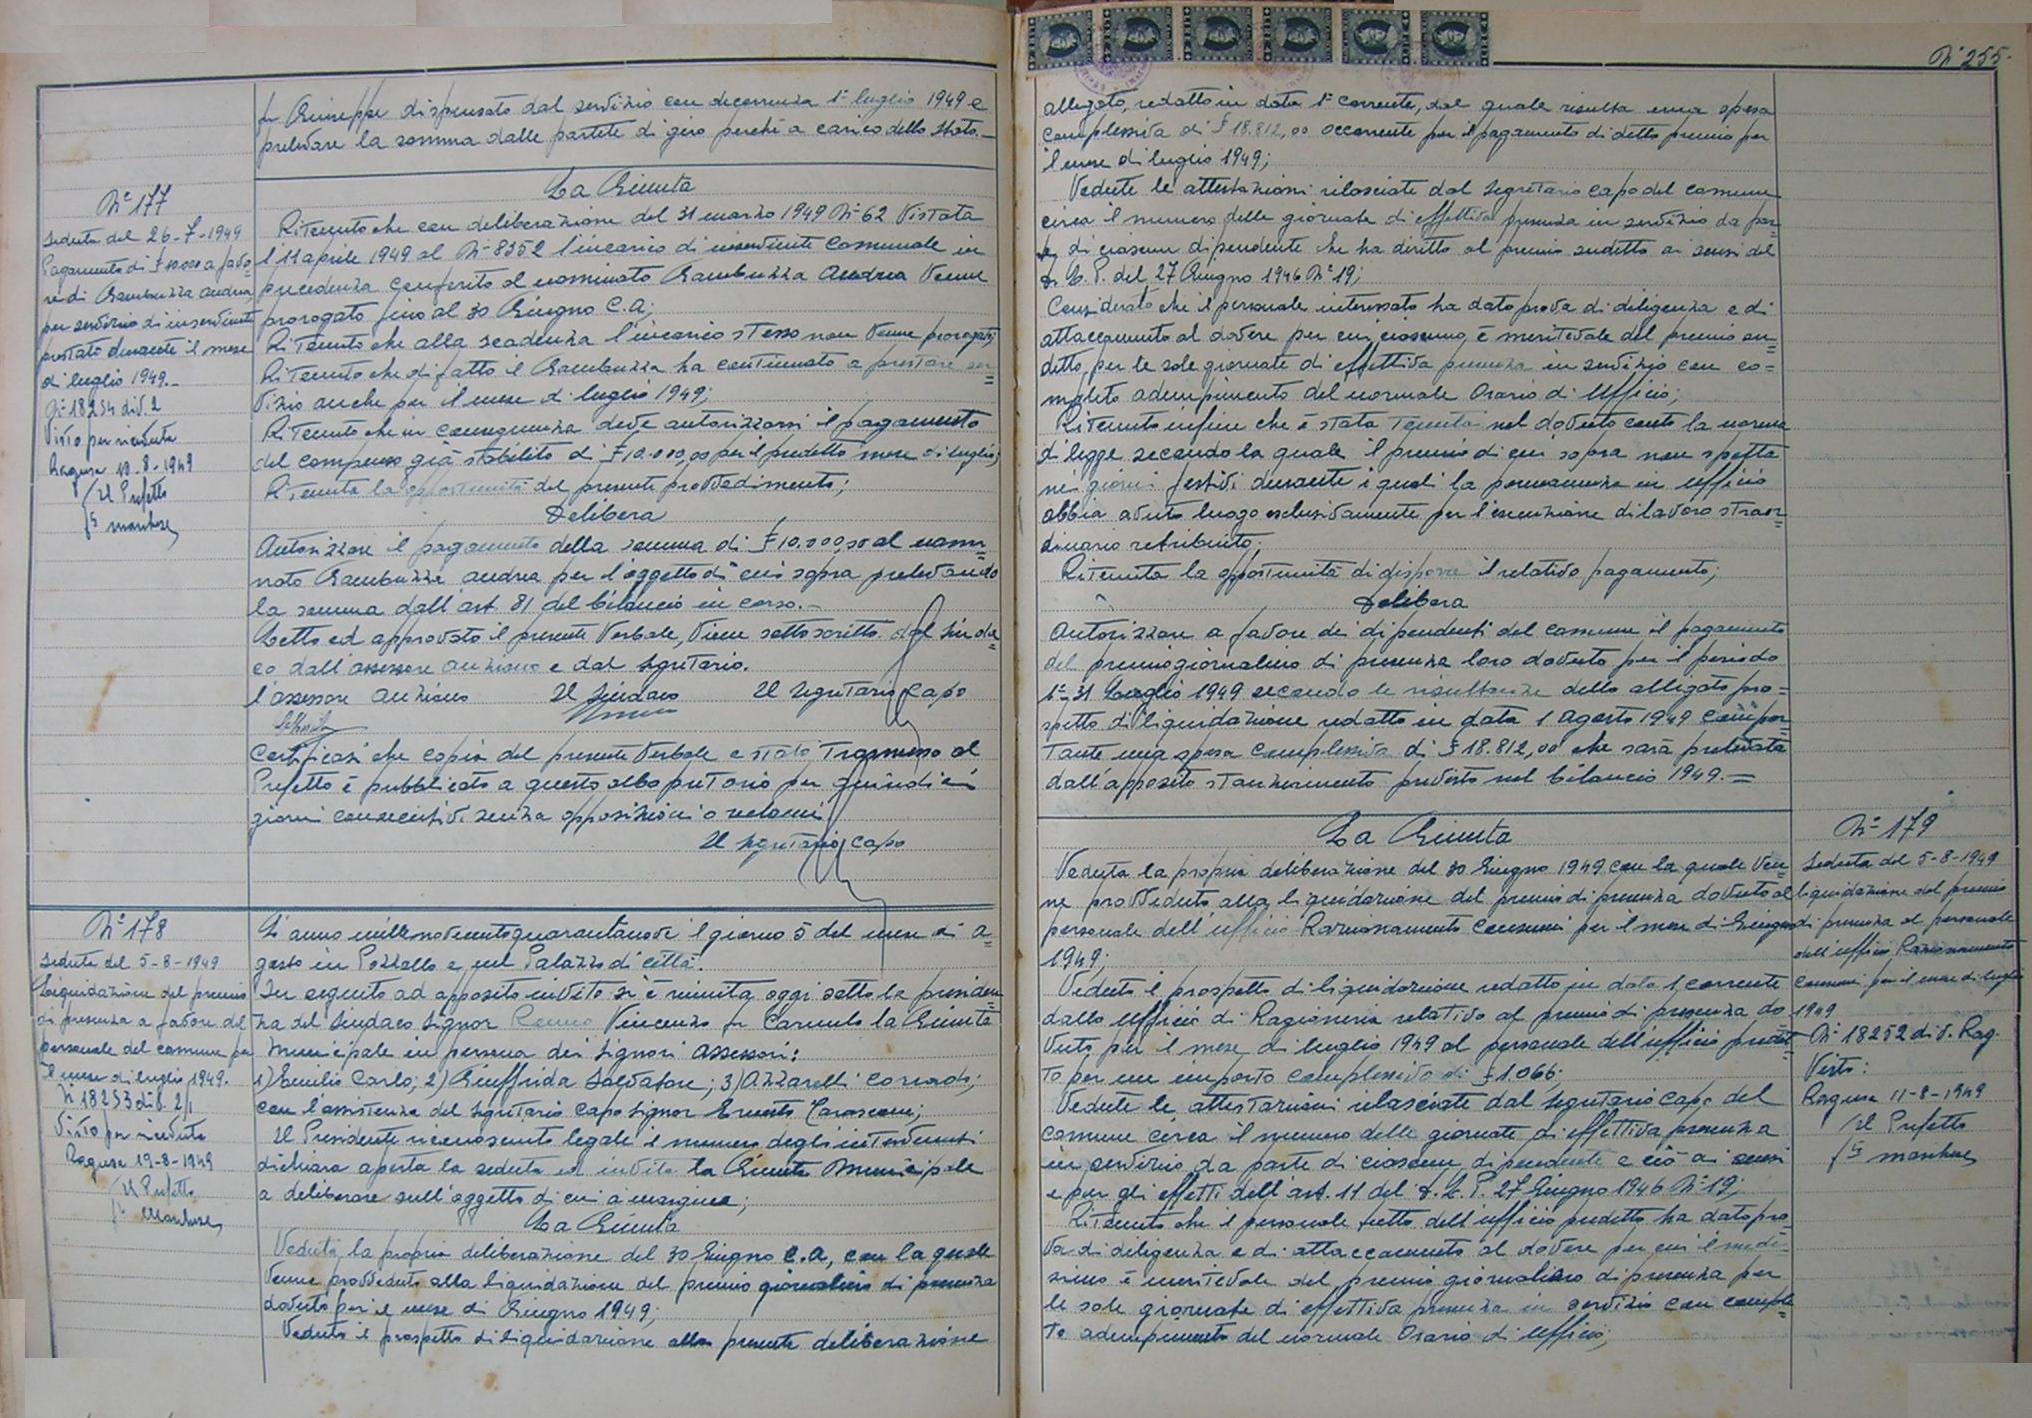 fu Giuseppe dispensato dal servizio con decorrenza 1° luglio 1949 e
prelevare la somma dalle partite di giro perchè a carico dello Stato.—
N° 177
Seduta del 26-7-1949
Pagamento di £ 10.000 a favo=
re di Rambuzza Andrea,
per servizio di inserviente
prestato durante il mese
di luglio 1949.—
N° 18254 div. 2
Visto per ricevuta
Ragusa 10-8-1949
Il Prefetto
La Giunta
Ritenuto che con deliberazione del 31 marzo 1949 N° 62 Vistata
l'11 aprile 1949 al N° 8352 l'incarico di inserviente Comunale in
precedenza conferito al nominato Rambuzza Andrea Venne
prorogato fino al 30 Giugno C.A;
Ritenuto che alla scadenza l'incarico stesso non Venne prorogato;
Ritenuto che di fatto il Rambuzza ha continuato a prestare ser=
Vizio anche per il mese di luglio 1949;
Ritenuto che in conseguenza deve autorizzarsi il pagamento
del compenso già stabilito di £ 10.000,00 per il predetto mese di luglio;
Ritenuta la opportunità del presente provvedimento;
Delibera
Autorizzare il pagamento della somma di £ 10.000,00 al nomi=
nato Rambuzza Andrea per l'oggetto di cui sopra prelevando
la somma dall'art. 81 del bilancio in corso.—
Letto ed approvato il presente Verbale, Viene sottoscritto dal Sinda=
co dall'assessore anziano e dal Segretario.
l'assessore anziano Il Sindaco Il Segretario Capo
Certificasi che copia del presente Verbale è stata Trasmessa al
Prefetto è pubblicata a questo albo pretorio per quindici
giorni consecutivi senza opposizioni o reclami
Il Segretario Capo
N° 178
Seduta del 5-8-1949
Liquidazione del premio
di presenza a favore del
personale del comune per
il mese di luglio 1949.
N° 18253 div. 2/1
Visto per ricevuta
Ragusa 19-8-1949
Il Prefetto
L'anno millenovecentoquarantanove il giorno 5 del mese di a=
gosto in Pozzallo e nel Palazzo di città.
In seguito ad apposito invito si è riunita oggi sotto la presiden=
za del Sindaco Signor Vincenzo fu Carmelo la Giunta
Municipale in persona dei Signori assessori:
1) Emilio Carlo; 2) Giuffrida Salvatore; 3) Azzarelli Corrado;
con l'assistenza del Segretario capo Signor Ernesto
Il Presidente riconosciuto legale il numero degli intervenuti
dichiara aperta la seduta ed invita la Giunta Municipale
a deliberare sull'oggetto di cui a margine;
La Giunta
Veduta la propria deliberazione del 30 Giugno C.A, con la quale
Venne provveduto alla liquidazione del premio giornaliero di presenza
dovuto per il mese di Giugno 1949;
Veduto il prospetto di liquidazione alla presente deliberazione
N° 255.
allegato, redatto in data 1° corrente, dal quale risulta una spesa
complessiva di £ 18.812,00 occorrente per il pagamento di detto premio per
il mese di luglio 1949;
Vedute le attestazioni rilasciate dal Segretario capo del comune
circa il numero delle giornate di effettiva presenza in servizio da par=
te di ciascun dipendente che ha diritto al premio sudetto ai sensi del
D. L. P. del 27 Giugno 1946 N° 19;
Considerato che il personale interessato ha dato prova di diligenza e di
attaccamento al dovere per cui ciascuno è meritevole del premio su=
detto, per le sole giornate di effettiva presenza in servizio con co=
mpleto adempimento del normale Orario di Ufficio;
Ritenuto infine che è stata Tenuta nel dovuto conto la norma
di legge secondo la quale il premio di cui sopra non spetta
nei giorni festivi durante i quali la permanenza in ufficio
abbia avuto luogo esclusivamente per l'esecuzione di lavoro straor=
dinario retribuito;
Ritenuta la opportunità di disporre il relativo pagamento;
Delibera
Autorizzare a favore dei dipendenti del comune il pagamento
del premio giornaliero di presenza loro dovuto per il periodo
1°-31 Luglio 1949 secondo le risultanze dello allegato pro=
spetto di liquidazione redatto in data 1 Agosto 1949 compor=
tante una spesa complessiva di £ 18.812,00 che sarà prelevata
dall'apposito stanziamento previsto nel bilancio 1949.=
La Giunta
Veduta la propria deliberazione del 30 Giugno 1949 con la quale Ven=
ne provveduto alla liquidazione del premio di presenza dovuto al
personale dell'ufficio Razionamento Consumi per il mese di Giugno
1949.
Veduto il prospetto di liquidazione redatto in data 1 corrente
dallo Ufficio di Ragioneria relativo al premio di presenza do
vuto per il mese di luglio 1949 al personale dell'ufficio predet=
to per un importo complessivo di £ 1066.
Vedute le attestazioni rilasciate dal Segretario capo del
comune circa il numero delle giornate di effettiva presenza
in servizio da parte di ciascun dipendente e ciò ai sensi
e per gli effetti dell'art. 11 del D. L. P. 27 Giugno 1946 N° 19;
Ritenuto che il personale tutto dell'ufficio predetto ha dato pro=
va di diligenza e di attaccamento al dovere per cui il mede=
simo è meritevole del premio giornaliero di presenza per
le sole giornate di effettiva presenza in servizio con comple=
to adempimento del normale Orario di Ufficio;
N° 179
Seduta del 5-8-1949
liquidazione del premio
di presenza al personale
dell'ufficio Razionamento
Consumi per il mese di luglio
1949
N° 18252 div. Rag.
Visto:
Ragusa 11-8-1949
Il Prefetto